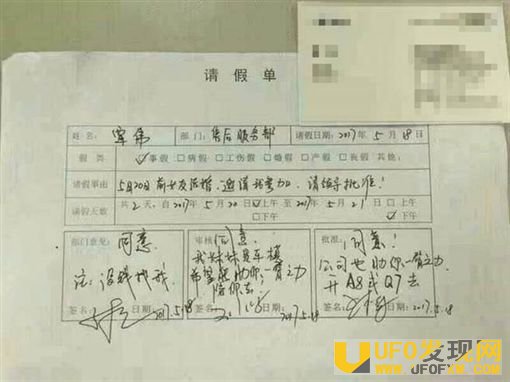 请假单
姓名: 军伟 部门: 售后服务部 请假日期: 2017年5月18日
假类 ☑事假 □病假 □工伤假 □婚假 □产假 □丧假 其他:
请假事由 5月20日前女友结婚.邀请我参加.请领导批准!
请假天数 共2天,自2017年5月20日☑上午 □下午 至2017年5月21日□上午 ☑下午
部门意见: 同意
注:没钱找我
签名: 日期: 2017.5.18
审核: 同意.
我妹妹是车模
希望能助你一臂之力
陪你去!
签名: 日期: 2017.5.18
批准: 同意!
公司也助你一臂之力
开A8或Q7去
签名: 日期: 2017.5.18
UFO发现网
WWW.UFOFXW.COM